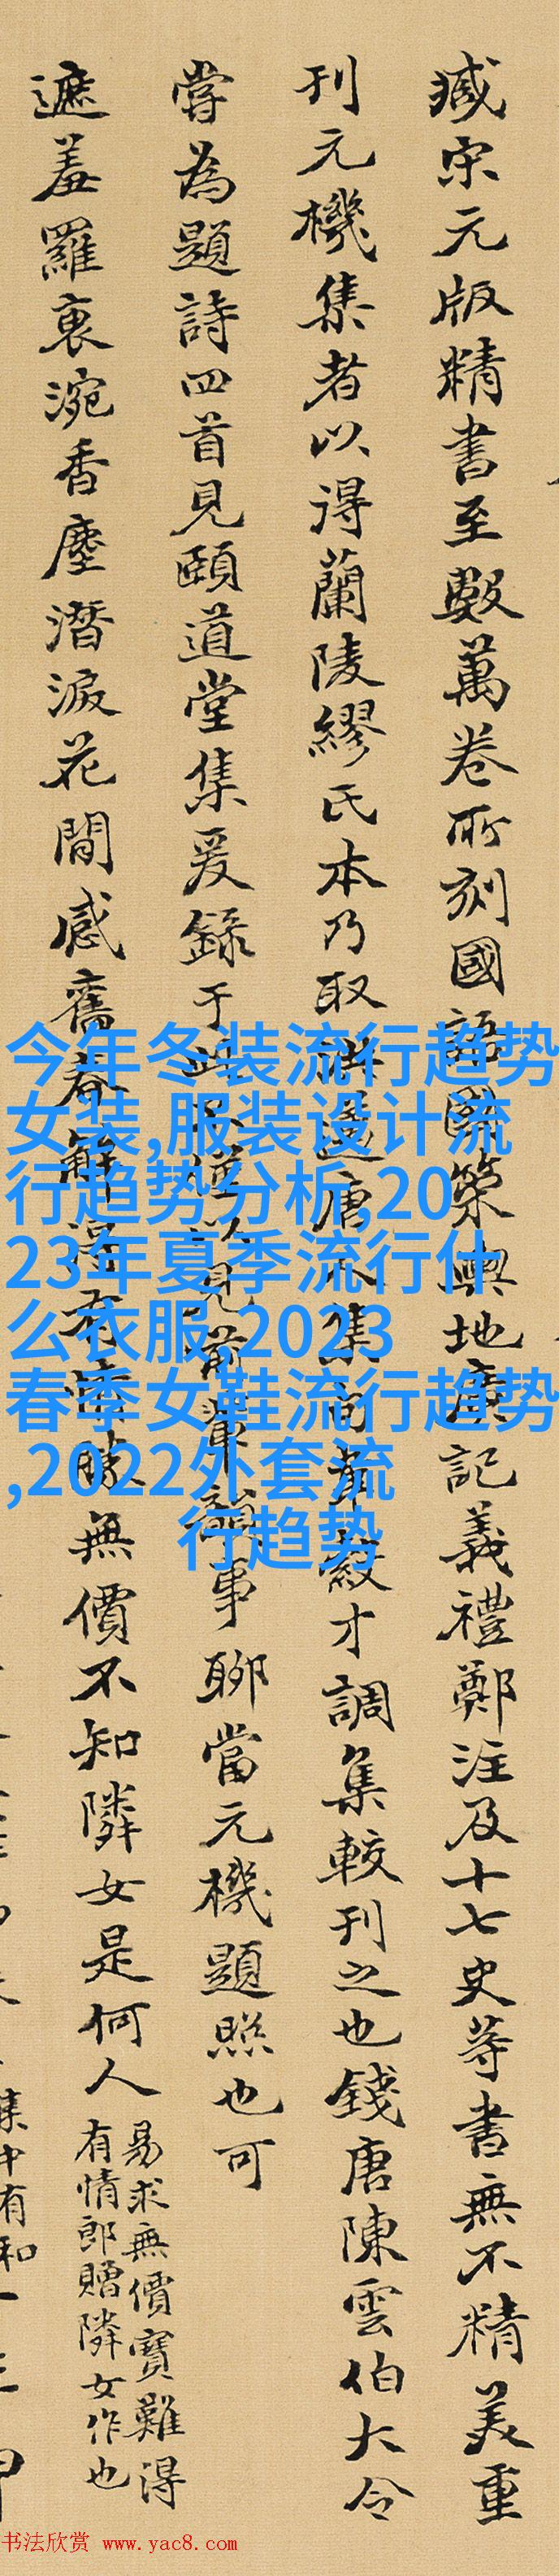 臧宋元版精書至數萬卷所刻國語國策輿地廣記義禮鄭注及十七史等書無不精美重
刊元機集者以得蘭陵繆氏本乃取洪邁唐人集句韋縠才調集較刊之也錢唐陳雲伯大令
嘗為題詩四首見頤道堂集爰錄于此以見前輩韻事聊當元機題照也可
遮羞羅裏涴香塵潛淚花間感舊春解得有情勝無價不知隣女是何人
易求無價寶難得
有情郎贈隣女作也
集中有和
今年冬装流行趋势
女装,服装设计流
行趋势分析,20
23年夏季流行什
么衣服 2023
春季女鞋流行趋势
,2022外套流
行趋势
书法欣赏 www.yac8.com